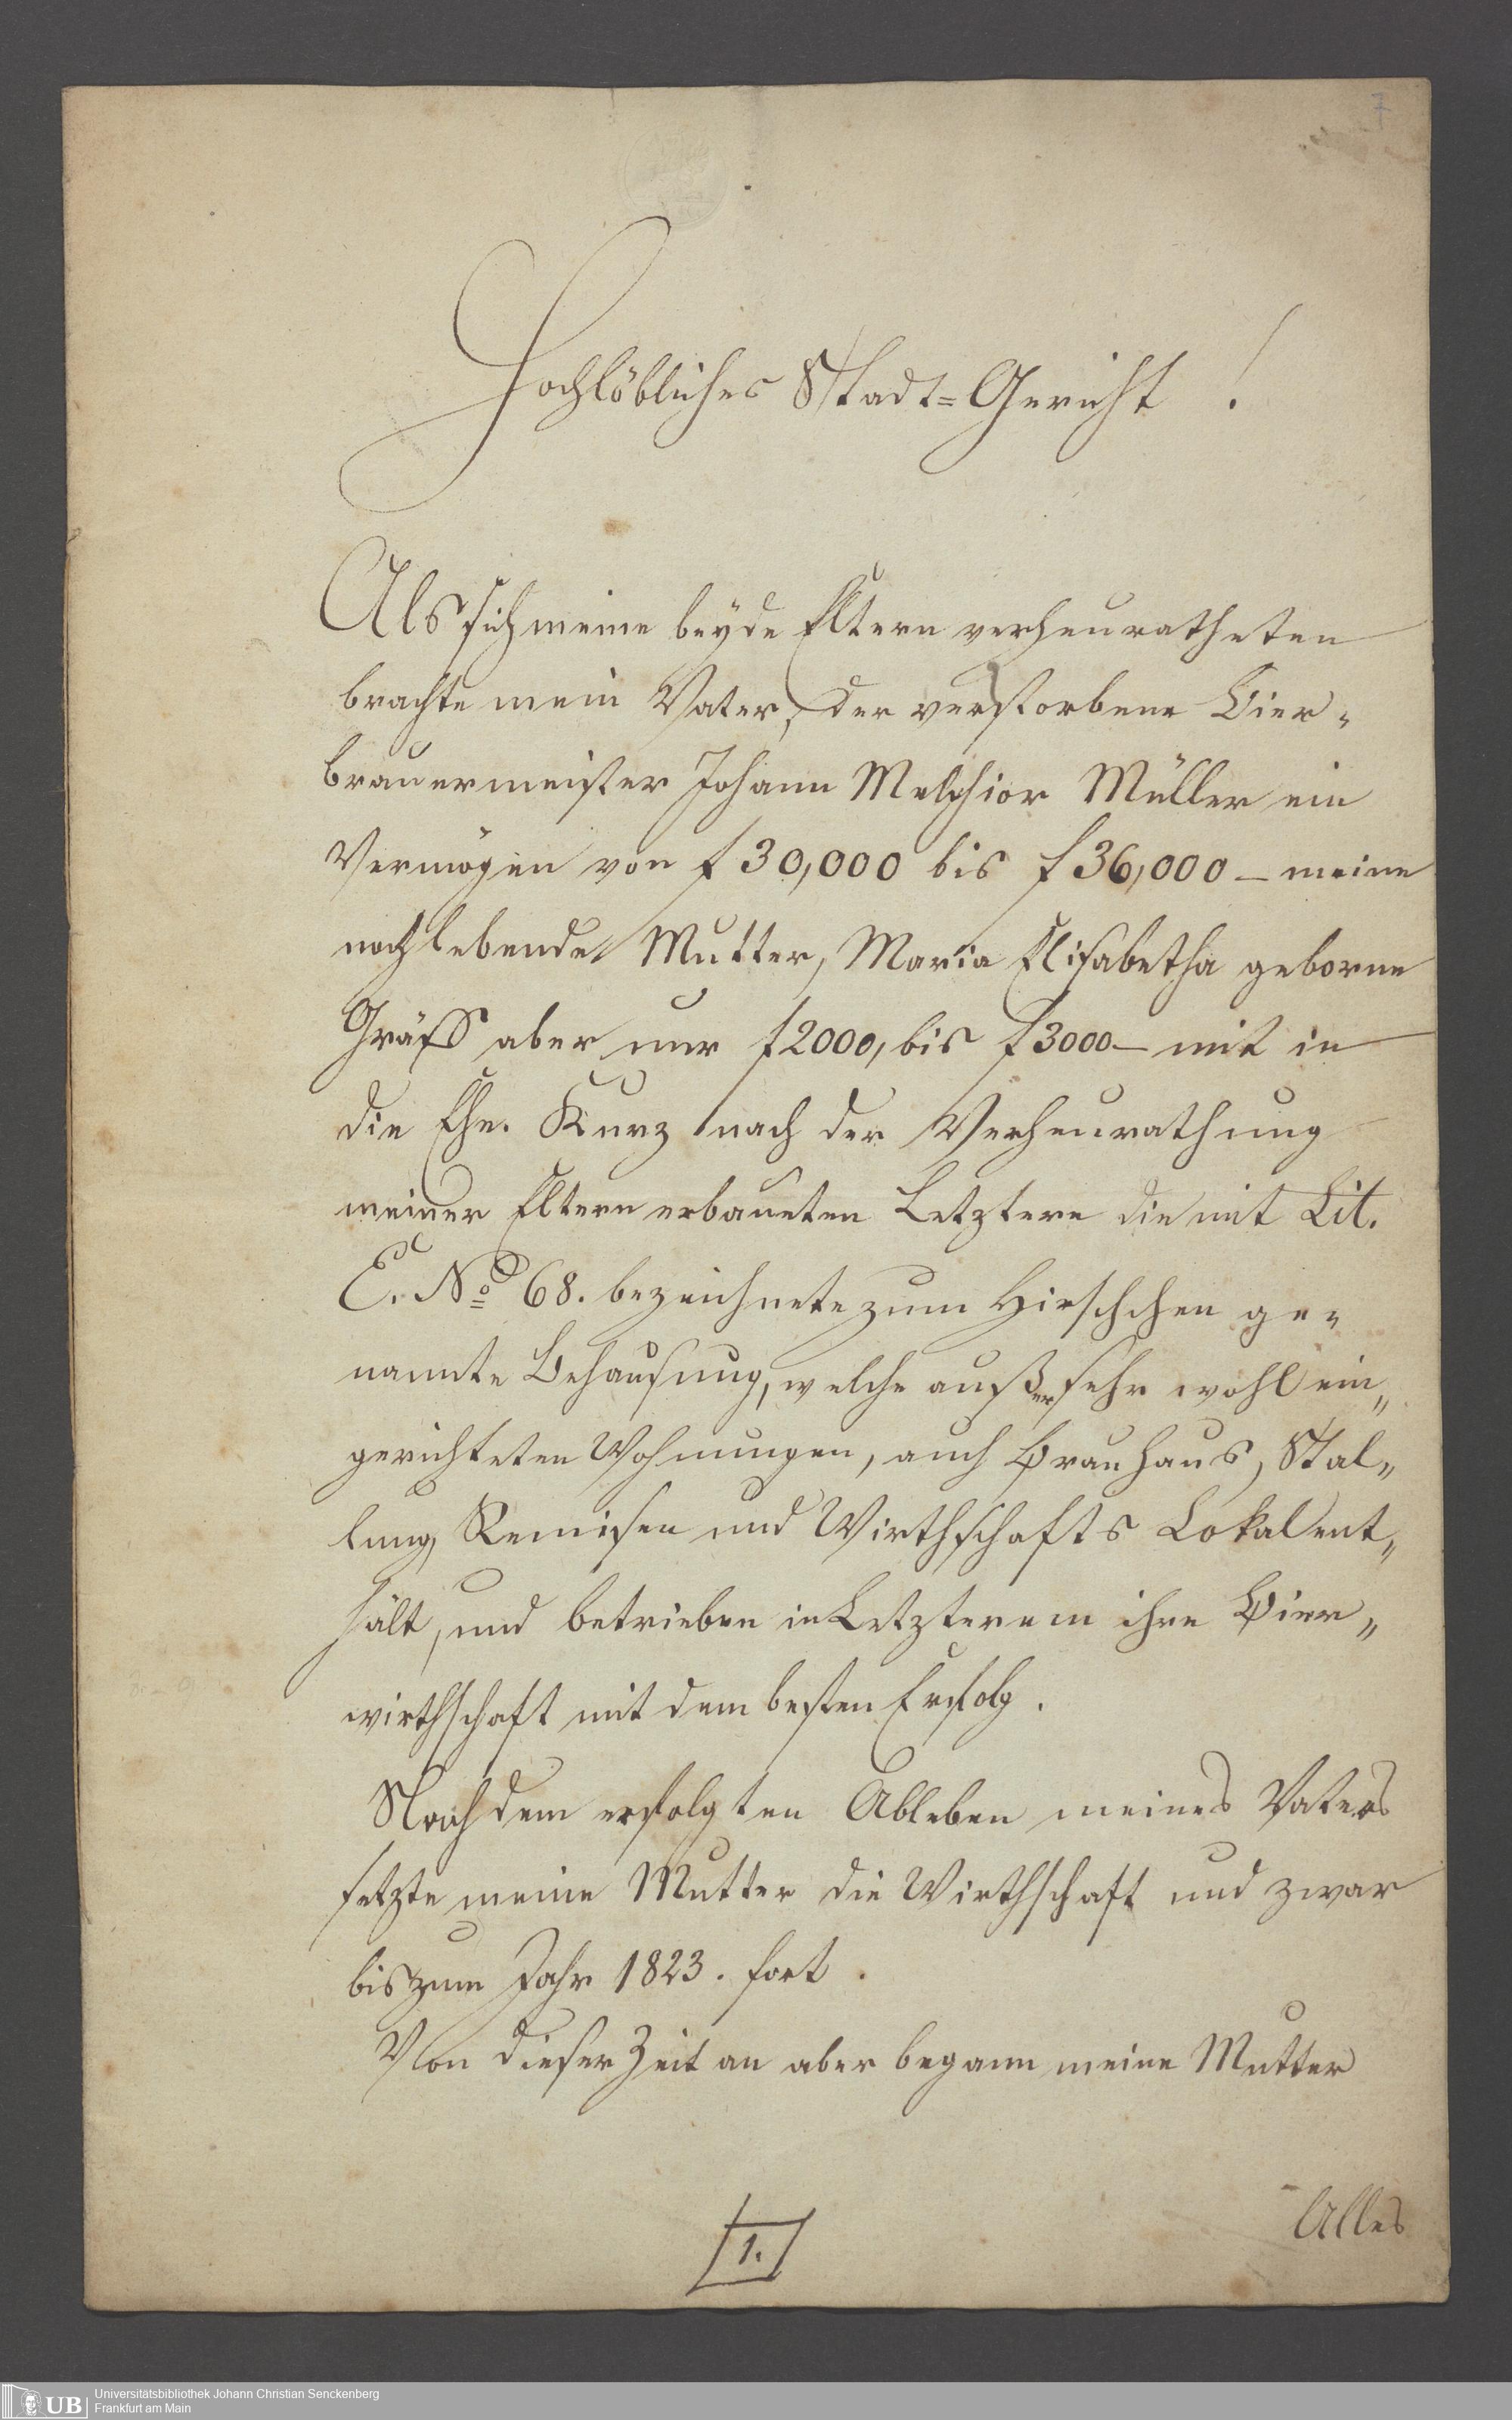 7
Hochlöbliches Stadt=Gericht !
Als sich meine beyde Eltern verheuratheten
brachte mein Vater, der verstorbene Bier„
brauermeister Johann Melchior Müller ein
Vermögen von f 30,000 bis f 36,000 – meine
noch lebende Mutter, Maria Elisabetha geborne
Gräff aber nur f 2000, bis f 3000 – mit in
die Ehe. Kurz nach der Verheurathung
meiner Eltern erbaueten Letztere die mit Lit.
E. No 68. bezeichnete zum Hirschchen ge„
nannte Behausung, welche außer sehr wohl ein„
gerichteten Wohnungen, auch Brauhaus, Stal„
lung, Remisen und Wirthschafts Lokal ent„
hält, und betrieben in Letzterem ihre Bier„
wirthschaft mit dem besten Erfolg.
Nach dem erfolgten Ableben meines Vaters
setzte meine Mutter die Wirthschaft und zwar
bis zum Jahr 1823. fort.
Von dieser Zeit an aber begann meine Mutter
Alles
1.
UB
Universitätsbibliothek Johann Christian Senckenberg
Frankfurt am Main